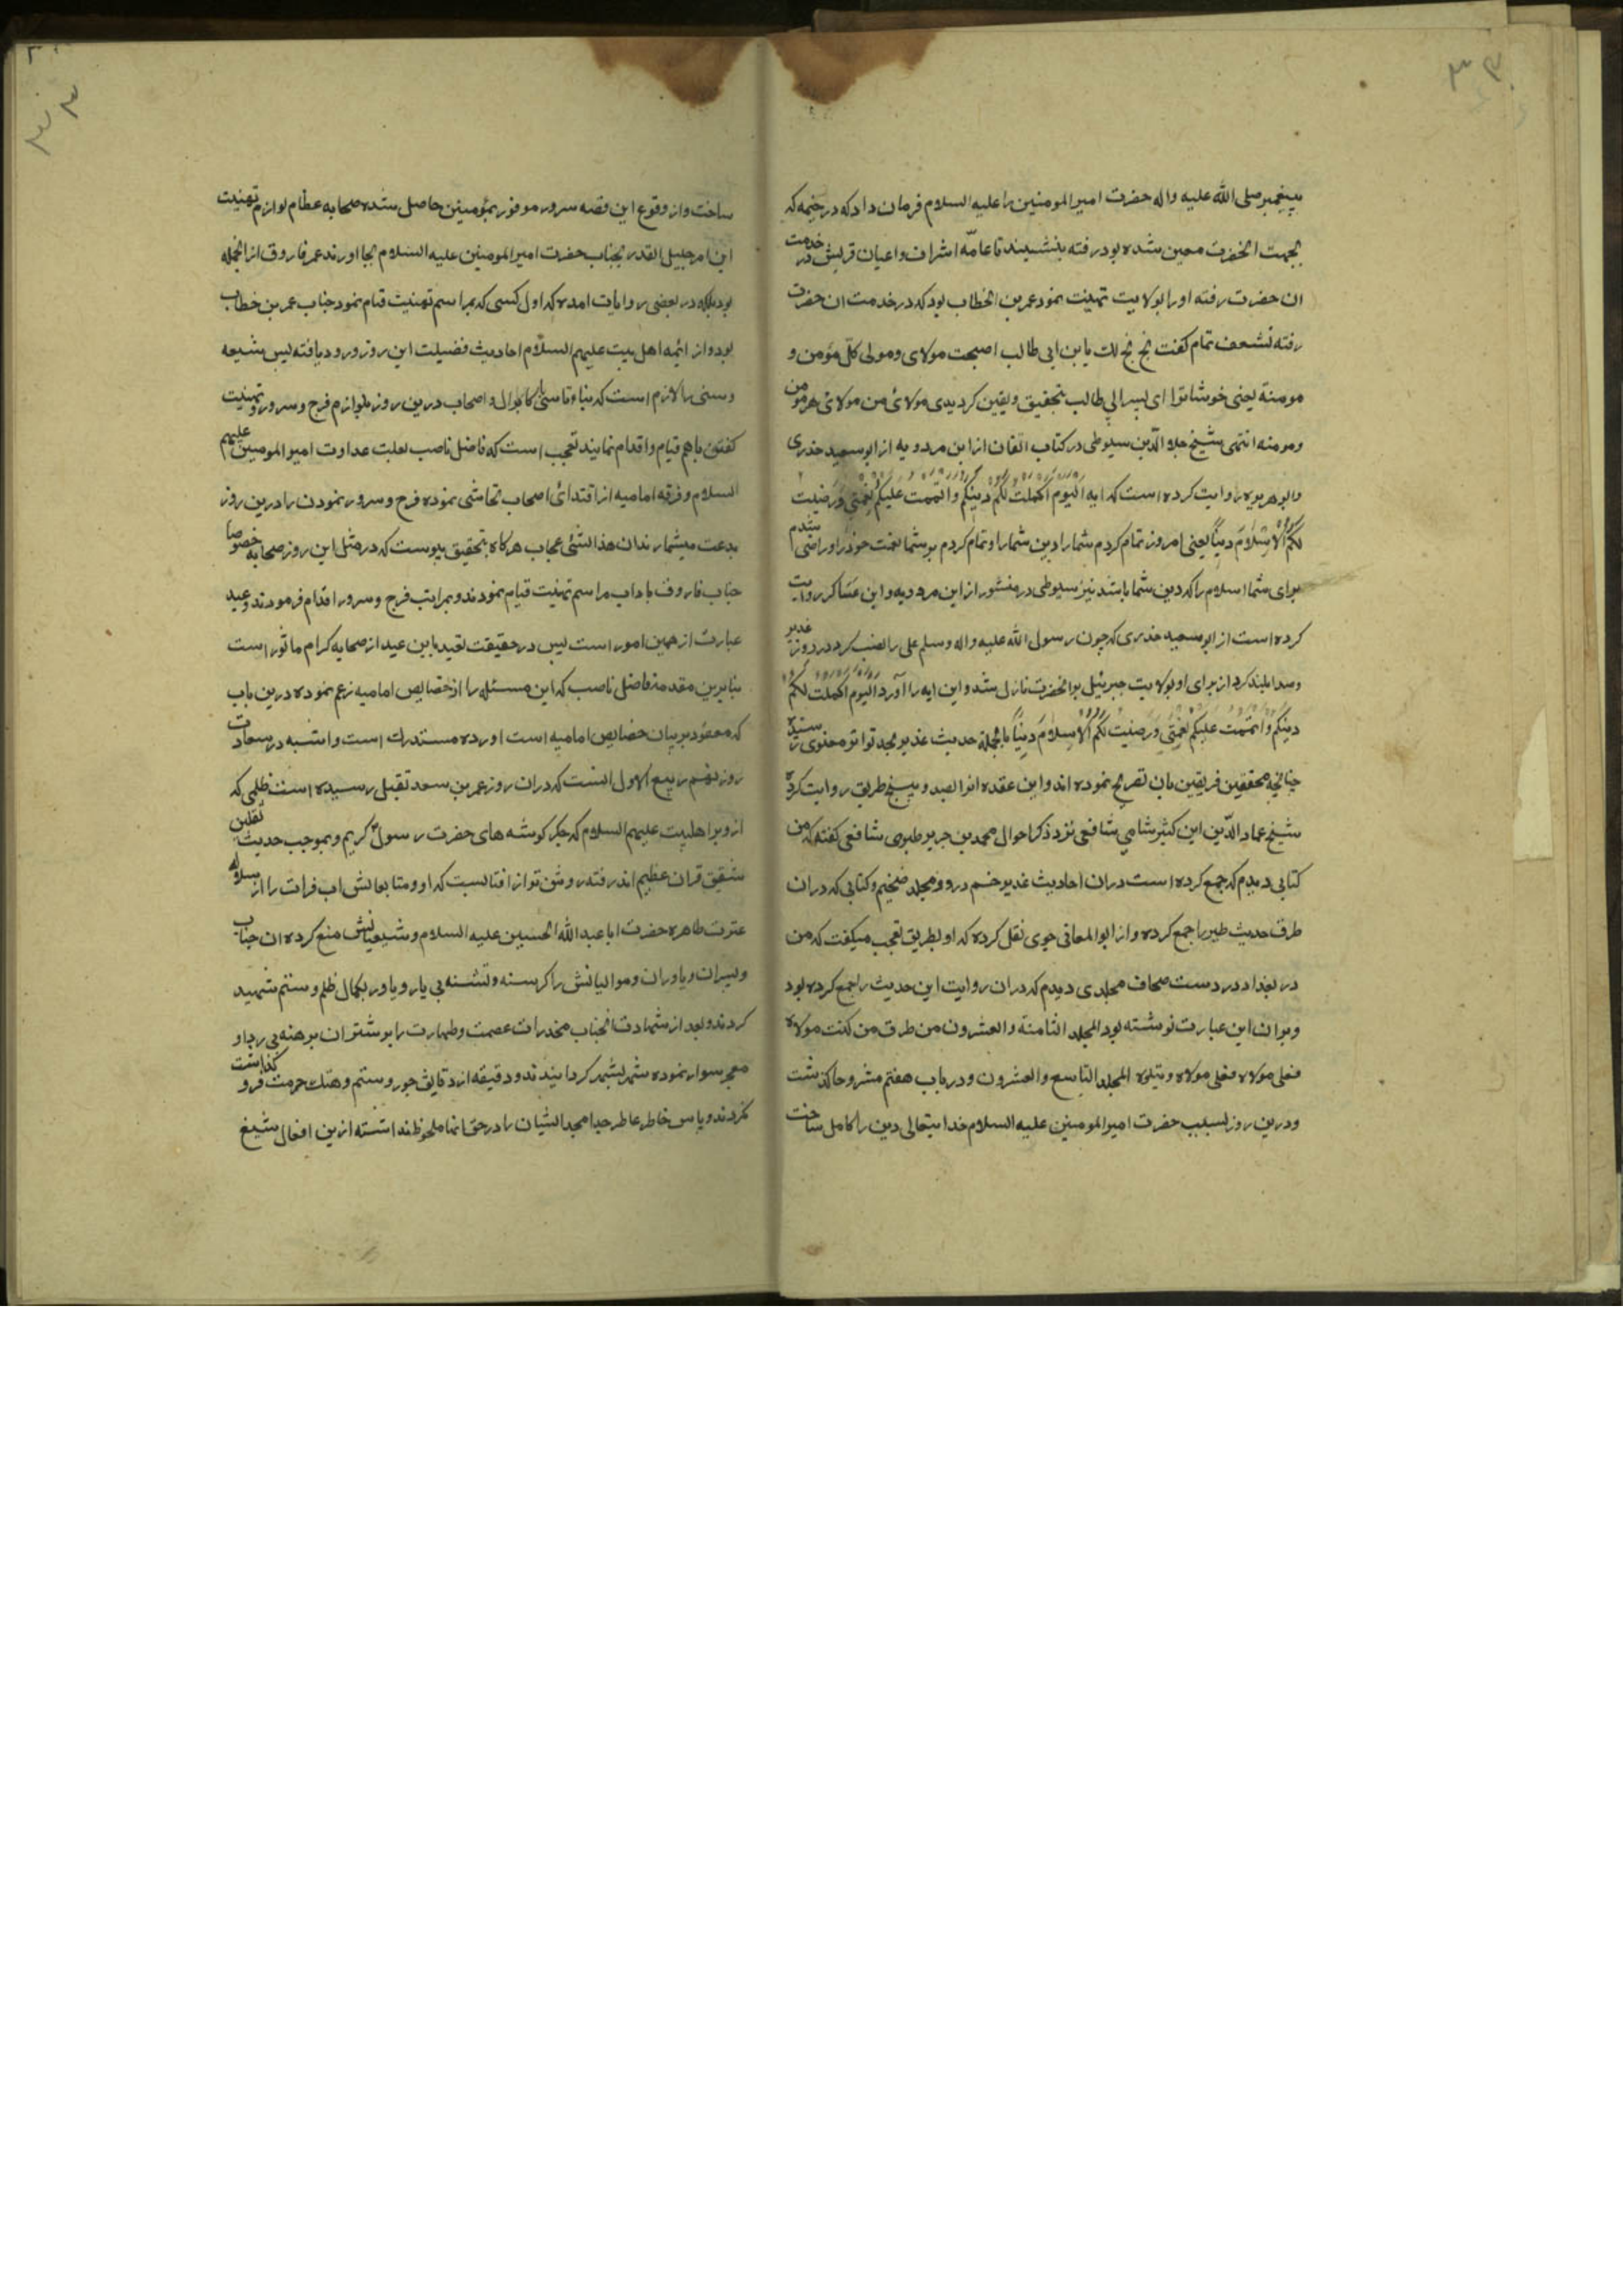 پیغمبر صلی الله علیه واله حضرت امیرالمومنین را علیه السلام فرمان داد که در خیمه که
بجهت انحضرت معین شده بود رفته بنشیند تا عامّه اشراف و اعیان قریش در خدمت
ان حضرت رفته او را بولایت تهنیت نمود عمر بن الخطاب بود که در خدمت ان حضرت
رفته بشعف تمام کفت بخ بخ لک یا بن ابی طالب اصبحت مولای ومولی کلّ مؤمن و
مومنة یعنی خوشا ترا ای پسر ابی طالب بتحقیق ویقین کردیدی مولائ من مولائ هر مومن
ومومنه انتهی شیخ جلال الدّین سیوطی در کتاب اتقان از ابن مردویه از ابوسعید خدری
وابوهریره روایت کرده است که ایه اَلیَوم اَکمَلتُ لَکُم دینَکُم وَاَتمَمتُ عَلَیکُم نِعمَتِی وَرَضِیتُ
لَکُمُ الاِسلامَ دیناً یعنی امروز تمام کردم شما را دین شما را وتمام کردم بر شما نعمت خود را و راضی شدم
برای شما اسلام را که دین شما باشد نیز سیوطی در منثور از ابن مردویه وابن عساکر روایت
کرده است از ابوسعید خدری که چون رسول الله علیه واله وسلم علی را نصب کرد در روز غدیر
وصدا بلند کرد از برای او بولایت جبرئیل بر انحضرت نازل شد و این ایه را آورد اَلیَوم اَکمَلتُ لَکُم
دینَکُم وَاَتمَمتُ عَلَیکُم نِعمَتِی وَرَضِیتُ لَکُمُ الاِسلامَ دیناً بالجمله حدیث غدیر بحد تواتر معنوی رسیده
چنانچه محققین فریقین بان تصریح نموده اند وابن عقده انرا بصد و پنج طریق روایت کرده
شیخ عماد الدّین ابن کثیر شامی شافعی نزد ذکر احوال محمد بن جریر طبری شافعی کفته که من
کتابی دیدم که جمع کرده است دران احادیث غدیر خم در دو مجلد ضخیم و کتابی که دران
طرق حدیث طیر را جمع کرده و از ابوالمعالی جوی نقل کرده که او بطریق تعجب میکفت که من
در بغداد در دست صحاف مجلدی دیدم که دران روایت این حدیث را جمع کرده بود
وبر ان این عبارت نوشته بود المجلد الثامنة والعشرون من طرق من کنت مولاه
فعلی مولاه فعلی مولاه ویتلوه المجلد التاسع والعشرون ودر باب هفتم مشروحا کذشت
ودرین روز بسبب حضرت امیرالمومنین علیه السلام خدایتعالی دین را کامل ساخت
ساخت واز وقوع این قصه سرور موفور بمؤمنین حاصل شده صحابه عظام لوازم تهنیت
این امر جلیل القدر بجناب حضرت امیرالمومنین علیه السلام بجا اوردند عمر فاروق از انجمله
بود بلکه در بعضی روایات امده که اول کسی که بمراسم تهنیت قیام نمود جناب عمر بن خطاب
بود واز ائمه اهل بیت علیهم السلام احادیث فضیلت این روز ورود یافته پس شیعه
وسنی را لازم است که بناء وتاسی کابرال واصحاب درین روز بلوازم فرح وسرور وتهنیت
کفتن باهم قیام واقدام نمایند تعجب است که فاضل ناصب بعلت عداوت امیرالمومنین علیهم
السلام وفرقه امامیه از اقتدائ اصحاب تحاشی نموده فرح وسرور نمودن را درین روز
بدعت میشمارند ان هذا لشئ عجاب هرکاه بتحقیق پیوست که در مثل این روز صحابه خصوصا
جناب فاروق باداب مراسم تهنیت قیام نمودند وبمراتب فرح وسرور اقدام فرمودند وعید
عبارت از همین امور است پس در حقیقت تعید باین عید از صحابه کرام ماثور است
بنابرین مقدمه فاضل ناصب که این مسئله را از خصایص امامیه زعم نموده درین باب
که معقود بر بیان خصایص امامیه است اورده مستدرک است واشبه در سعادت
روز نهم ربیع الاول انست که دران روز عمر بن سعد بقتل رسیده است ظلمی که
ازو بر اهلبیت علیهم السلام که جکر کوشه های حضرت رسول کریم وبموجب حدیث ثقلین
شقیق قران عظیم اند رفته روشن تر از افتابست که او ومتابعانش اب فرات را از سلاله
عترت طاهره حضرت اباعبدالله الحسین علیه السلام وشیعیانش منع کرده ان جناب
وپسران ویاوران وموالیانش را کرسنه وتشنه بی یار ویاور بکمال ظلم وستم شهید
کردند وبعد از شهادت انجناب مخدرات عصمت وطهارت را بر شتران برهنه بی ردا و
معجر سوار نموده شهر بشهر کردانیدند ودقیقه از دقایق جور وستم وهتک حرمت فرو کذاشت
نکردند وپاس خاطر عاطر جد امجد ایشان را در حق انها ملحوظ نداشته ازین افعال شنیع